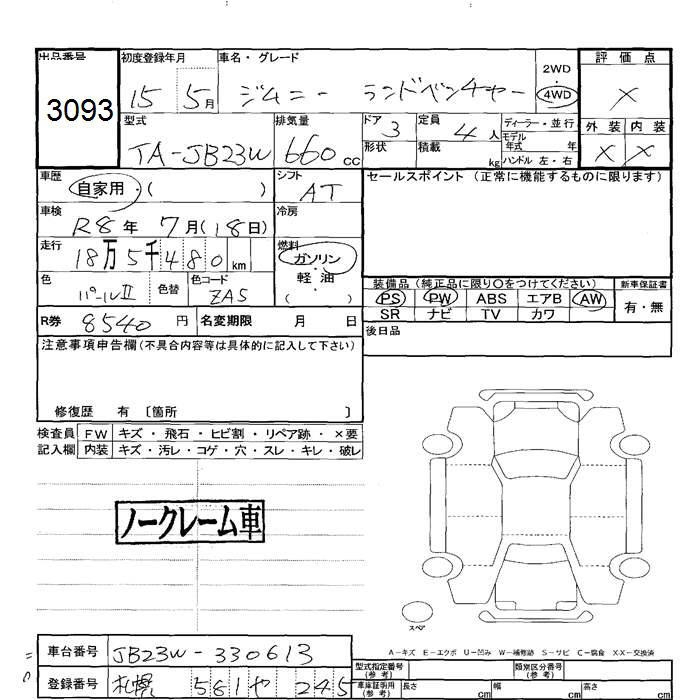 出品番号 初度登録年月 車名・グレード 評価点
3093 15 5月 ジムニー ランドベンチャー 2WD 4WD ×
型式 排気量 ドア 3 定員 4人 ディーラー・並行 外装 内装
TA-JB23W 660cc 形状 積載 kg モデル年式 年 ハンドル 左・右 × ×
車歴 自家用・( ) シフト AT セールスポイント (正常に機能するものに限ります)
車検 R8年 7月(18日) 冷房
走行 18万5千480km 燃料 ガソリン 軽油 ( )
色 パールII 色替 色コード ZA5 装備品 (純正品に限り〇をつけてください) 新車保証書
PS PW ABS エアB AW 有・無
SR ナビ TV カワ
R券 8540円 名変期限 月 日 後日品
注意事項申告欄(不具合内容等は具体的に記入して下さい)
修復歴 有 〔箇所 〕
検査員 FW キズ・飛石・ヒビ割・リペア跡・×要
記入欄 内装 キズ・汚レ・コゲ・穴・スレ・キレ・破レ
ノークレーム車
スペア
A-キズ E-エクボ U-凹み W-補修跡 S-サビ C-腐食 XX-交換済
車台番号 JB23W-330613 型式指定番号(参考) 類別区分番号(参考)
登録番号 札幌 581 や 245 車庫証明用(参考) 長さ cm 幅 cm 高さ cm